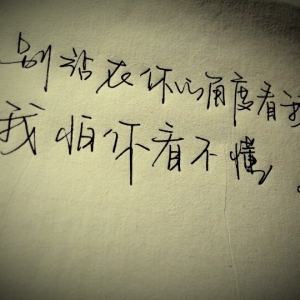 别站在你的角度看我
我怕你看不懂